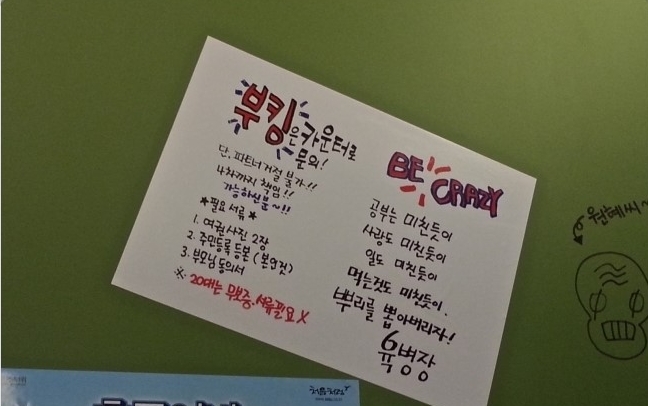 부킹은 카운터로
문의!
단, 파트너 거절 불가!!
4차까지 책임!!
가능하신분~!!
★필요 서류★
1. 여권사진 2장
2. 주민등록 등본 (본인것)
3. 부모님 동의서
※ 20대는 무보증. 서류필요 X
BE CRAZY
공부는 미친듯이
사랑도 미친듯이
일도 미친듯이
먹는것도 미친듯이.
뿌리를 뽑아버리자!
육병장
원혜씨~
처음처럼